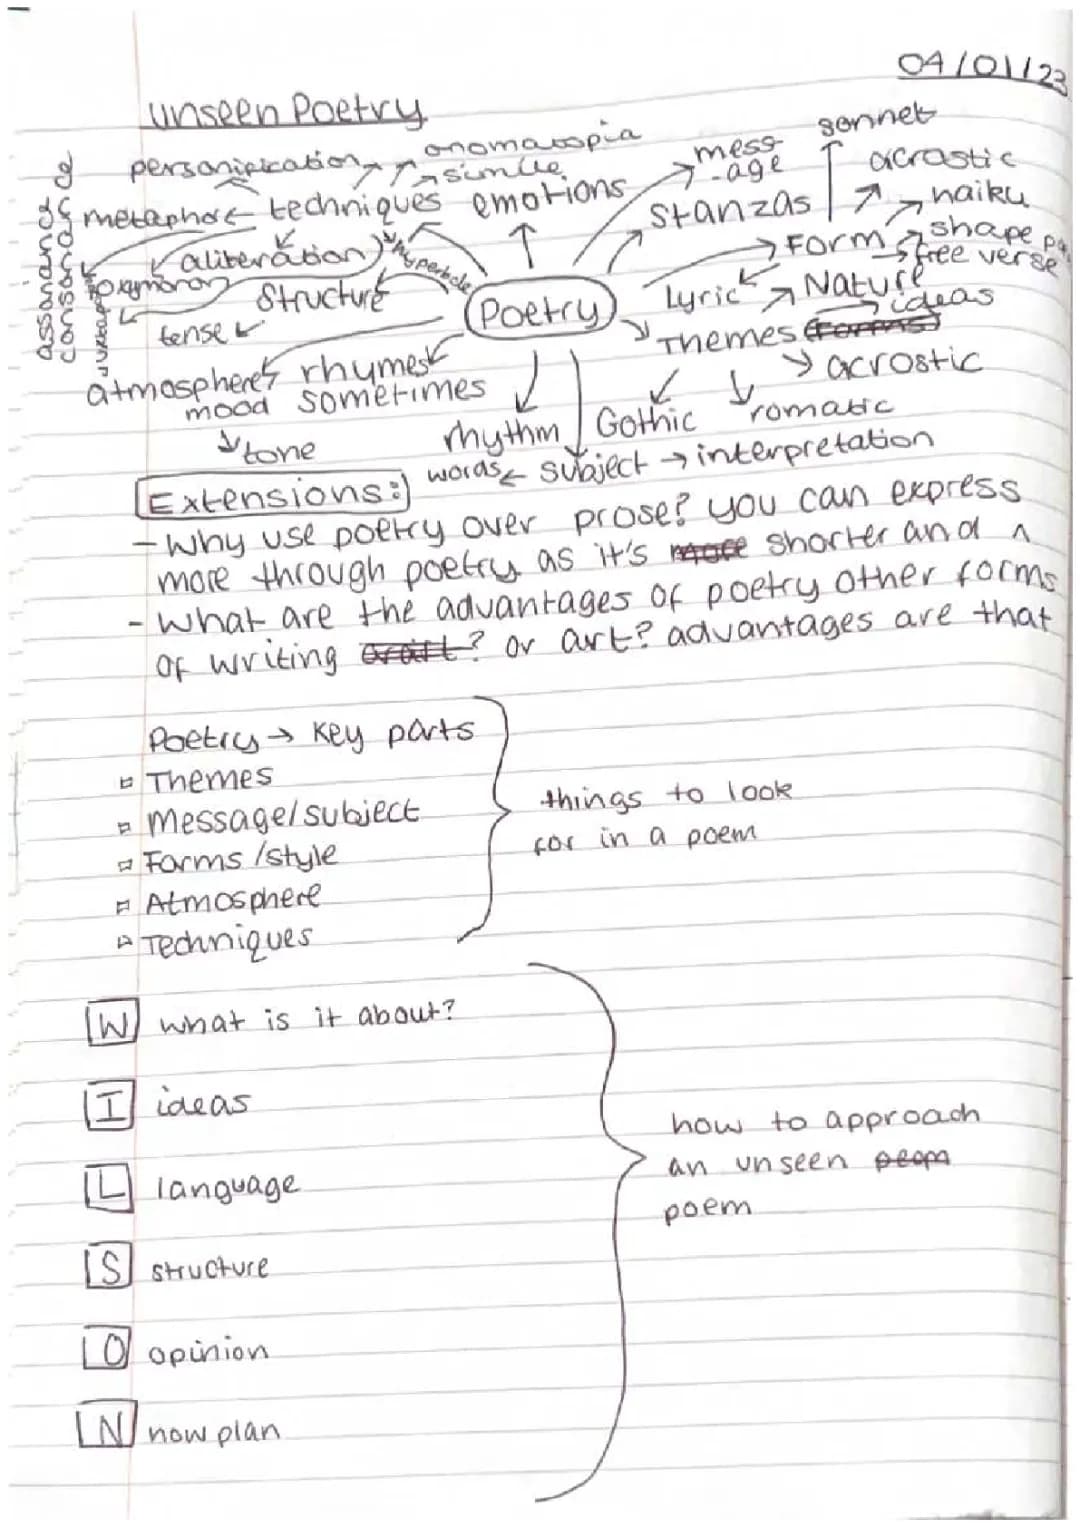 04/01/23
Unseen Poetry
sonnet
personification
onomatopia
simile
mess
-age
acrostic
haiku
metaphor
techniques
emotions
stanzas
Form
shape
free verse
aliteration
hyperbole
oxymoron
Structure
Poetry
Lyric
Nature
ideas
tense
Themes
acrostic
atmosphere
rhymes
sometimes
mood
tone
rhythm
Gothic
romatic
words
subject → interpretation
Extensions:
- Why use poetry over prose? you can express
more through poetry as it's shorter and ^
- What are the advantages of poetry other forms
of writing ? or art? advantages are that
Poetry → Key parts
Themes
Message/subject
Forms /style
Atmosphere
Techniques
things to look
for in a poem
W what is it about?
I ideas
L language
S structure
O opinion
N now plan
how to approach
an unseen peom
poem